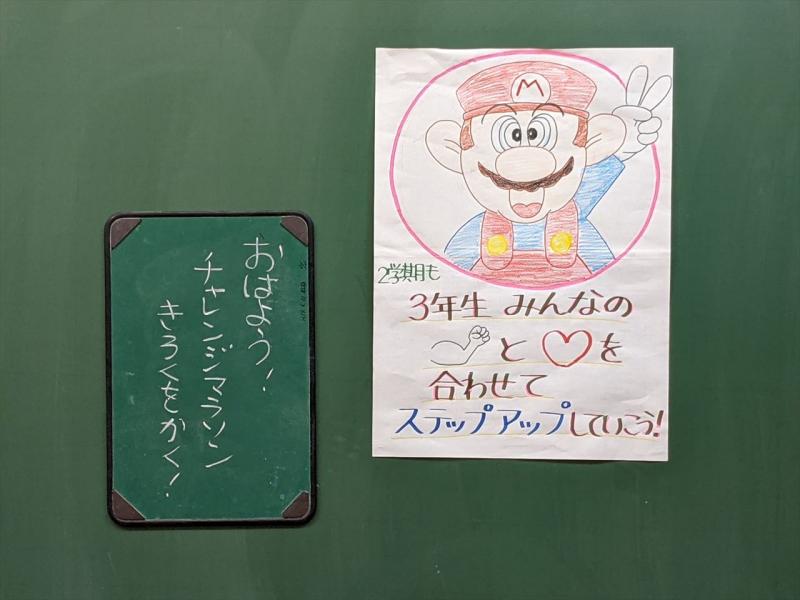 おはよう!
チャレンジマラソン
きろくをかく!
M
2学期も
3年生 みんなの
と を
合わせて
ステップアップしていこう!